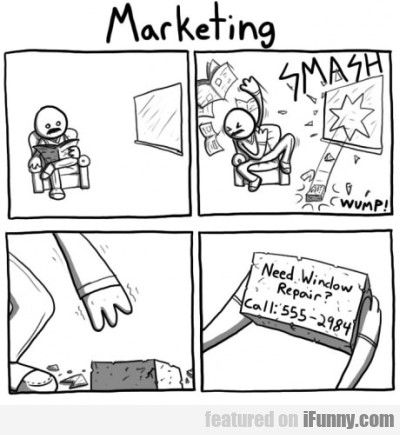 Marketing
SMASH
WUMP!
Need Window
Repair?
Call: 555-2984
featured on iFunny.com